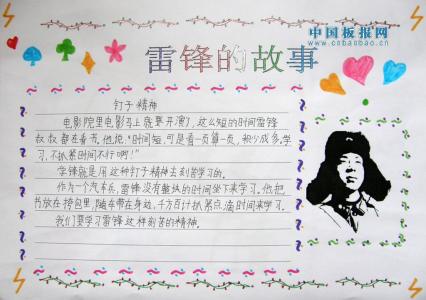 中国板报网
www.cnbanbao.cn
雷锋的故事
钉子精神
电影院里电影马上就要开演了,这么短的时间雷锋
叔叔都在看书。他说:“时间短,可是看一页算一页,积少成多,学
习,不抓紧时间不行啊!”
雷锋就是用这种钉子精神去刻苦学习的。
作为一个汽车兵,雷锋没有整块的时间坐下来学习。他把
书放在挎包里,随车带在身边,千方百计抓紧点滴时间来学习。
我们要学习雷锋这样刻苦的精神。